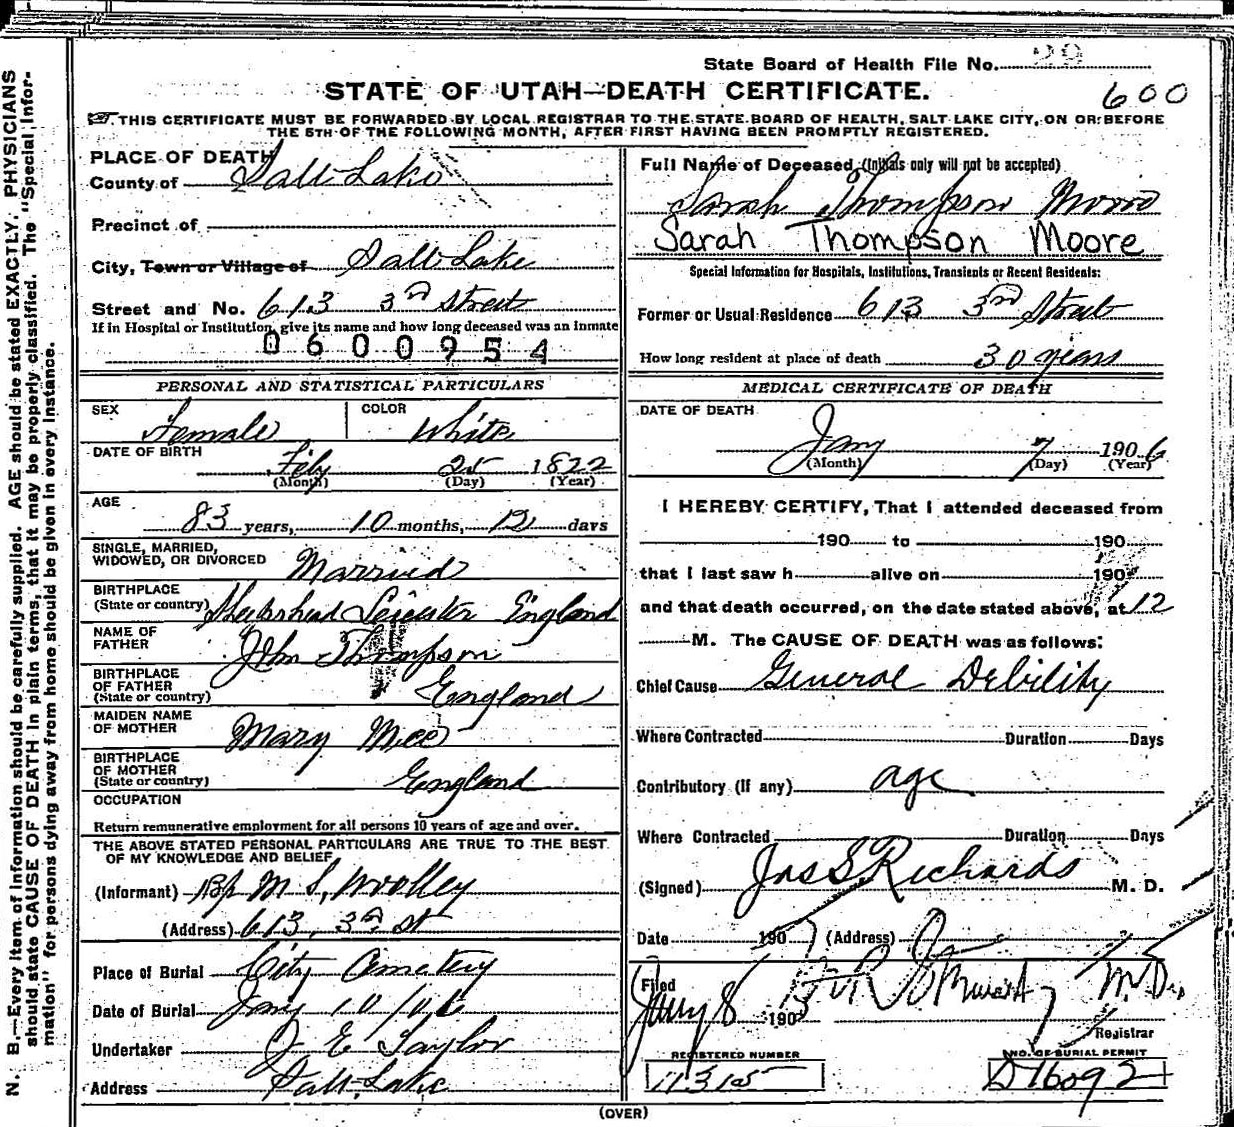 State Board of Health File No. 29
600
STATE OF UTAH—DEATH CERTIFICATE.
THIS CERTIFICATE MUST BE FORWARDED BY LOCAL REGISTRAR TO THE STATE BOARD OF HEALTH, SALT LAKE CITY, ON OR BEFORE
THE 5TH OF THE FOLLOWING MONTH, AFTER FIRST HAVING BEEN PROMPTLY REGISTERED.
PLACE OF DEATH
County of Salt Lake
Precinct of
City, Town or Village of Salt Lake
Street and No. 613 3rd Street
If in Hospital or Institution, give its name and how long deceased was an inmate
0600954
PERSONAL AND STATISTICAL PARTICULARS
SEX Female COLOR White
DATE OF BIRTH
Feby 25 1822
(Month) (Day) (Year)
AGE
83 years, 10 months, 12 days
SINGLE, MARRIED,
WIDOWED, OR DIVORCED Married
BIRTHPLACE
(State or country) Leicester England
NAME OF
FATHER John Thompson
BIRTHPLACE
OF FATHER
(State or country) England
MAIDEN NAME
OF MOTHER Mary
BIRTHPLACE
OF MOTHER
(State or country) England
OCCUPATION
Return remunerative employment for all persons 10 years of age and over.
THE ABOVE STATED PERSONAL PARTICULARS ARE TRUE TO THE BEST
OF MY KNOWLEDGE AND BELIEF
(Informant) Bp M S, Woolley
(Address) 613, 3rd St
Place of Burial City Cemetery
Date of Burial Jany 10/06
Undertaker J E Taylor
Address Salt Lake
Full Name of Deceased (Initials only will not be accepted)
Sarah Thompson Moore
Sarah Thompson Moore
Special Information for Hospitals, Institutions, Transients or Recent Residents:
Former or Usual Residence 613 3rd Street
How long resident at place of death 30 years
MEDICAL CERTIFICATE OF DEATH
DATE OF DEATH
Jany 7 1906
(Month) (Day) (Year)
I HEREBY CERTIFY, That I attended deceased from
190 to 190
that I last saw h alive on 190
and that death occurred, on the date stated above, at 12
M. The CAUSE OF DEATH was as follows:
Chief Cause General Debility
Where Contracted Duration Days
Contributory (if any) age
Where Contracted Duration Days
(Signed) Jas S Richards M. D.
Date 190 (Address)
Filed
Jany 8 190 M.D.
Registrar
REGISTERED NUMBER
11315
NO. OF BURIAL PERMIT
D16092
(OVER)
N. B.—Every item of information should be carefully supplied. AGE should be stated EXACTLY. PHYSICIANS
should state CAUSE OF DEATH in plain terms, that it may be properly classified. The "Special Infor-
mation" for persons dying away from home should be given in every instance.